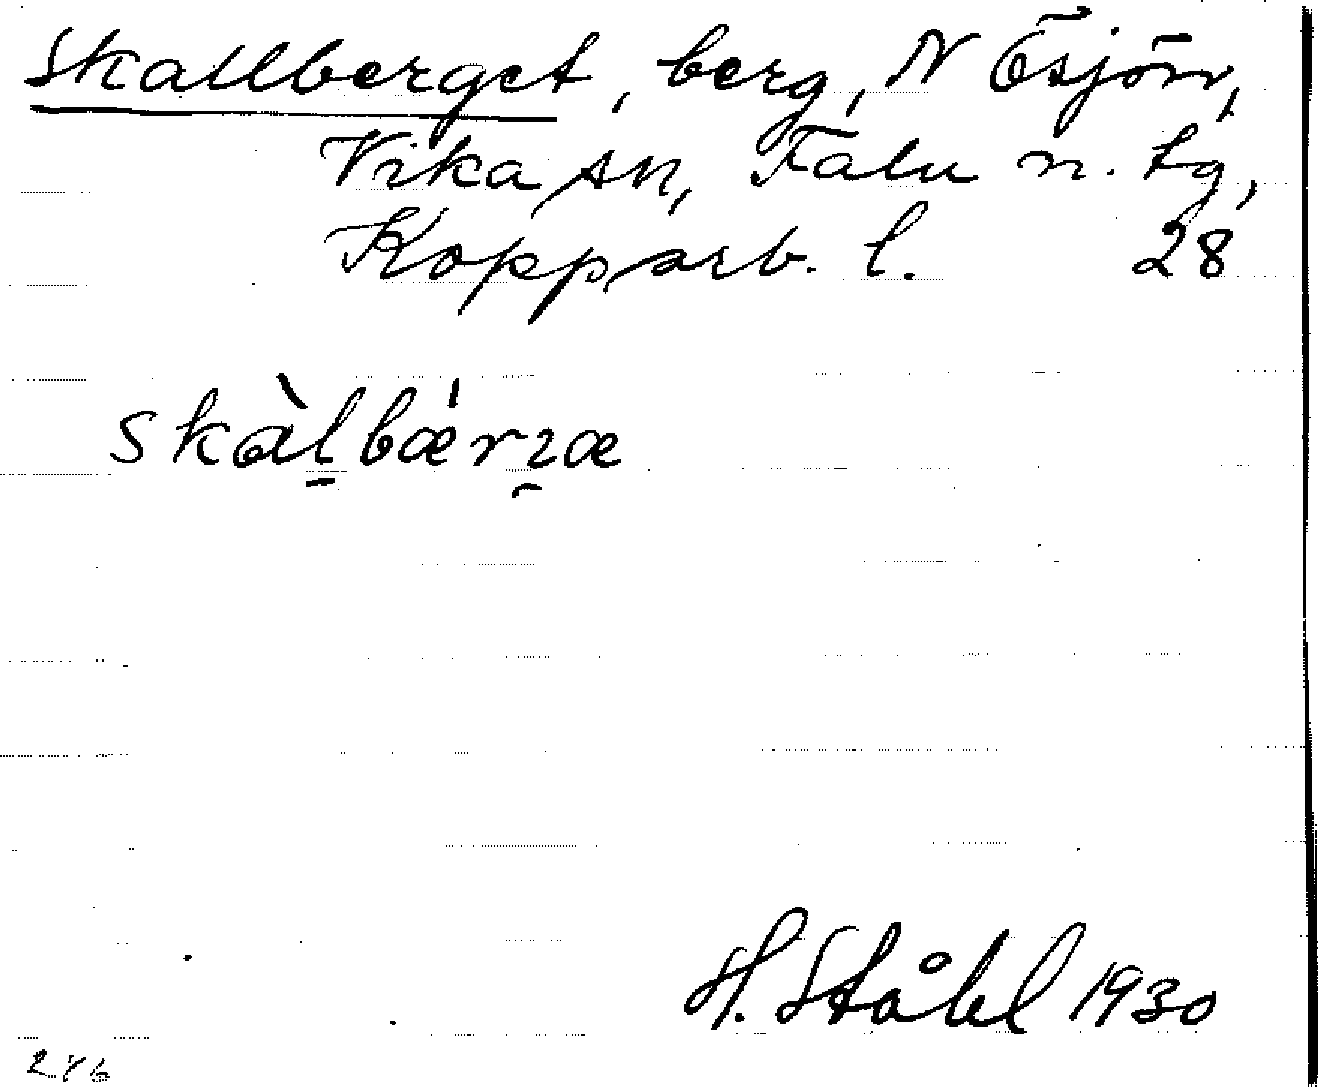 Skallberget, berg, N Ösjön,
Vika sn, Falu n. tg,
Kopparb. l. 28
skàl̠bǽrɿ̯æ
H. Ståhl 1930